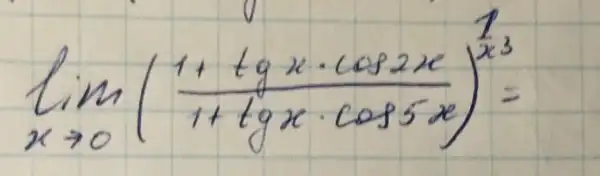 lim x→0 ( (1 + tg x · cos 2x) / (1 + tg x · cos 5x) )^(1/x³) =